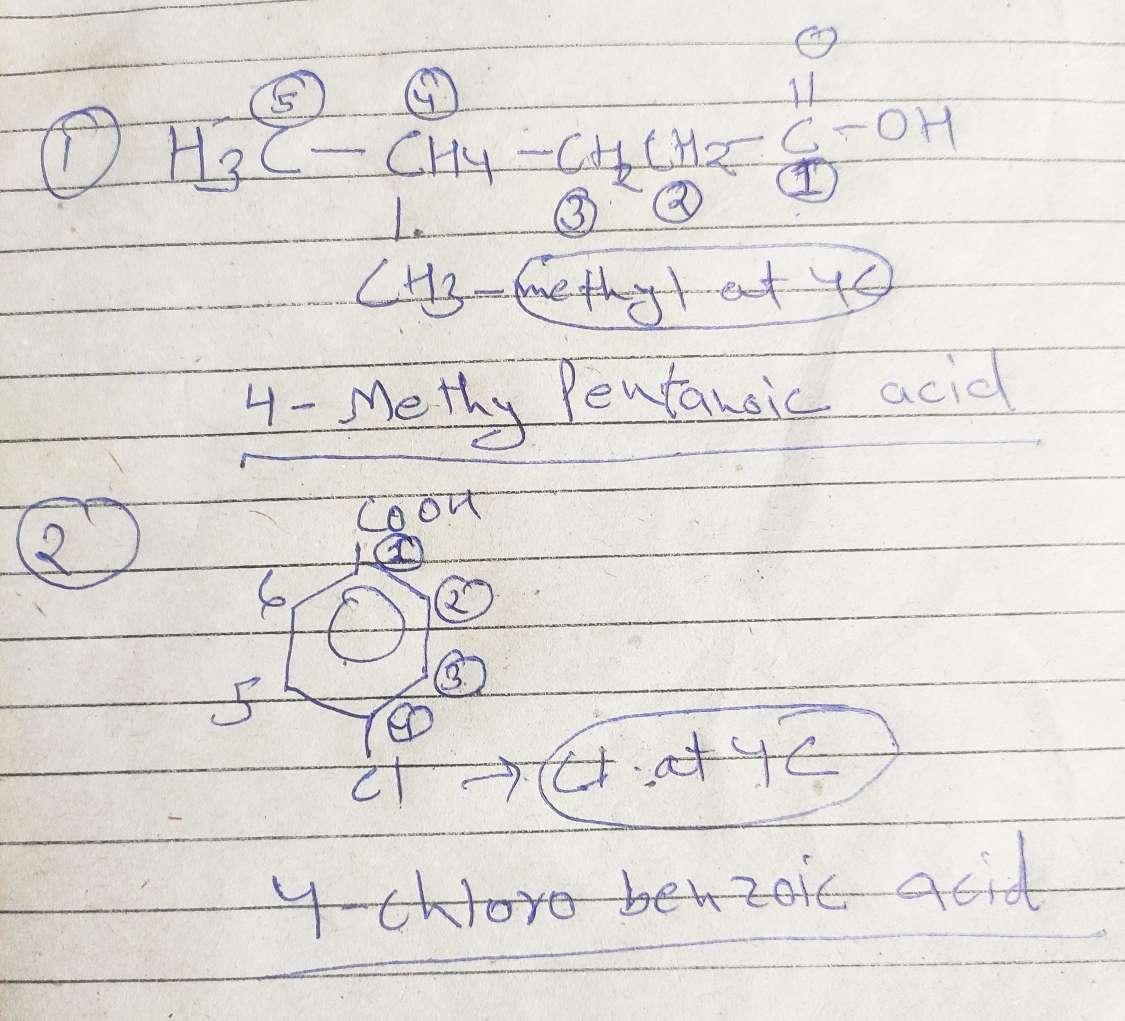 ⑤ ④ O
① H3C - CH4 - CH2 CH2 - C - OH
③ ② ①
CH3 - methyl at 4C
4 - Methy Pentanoic acid
② COOH
①
6 ②
5 ③
④
Cl → Cl at 4C
4-chloro benzoic acid